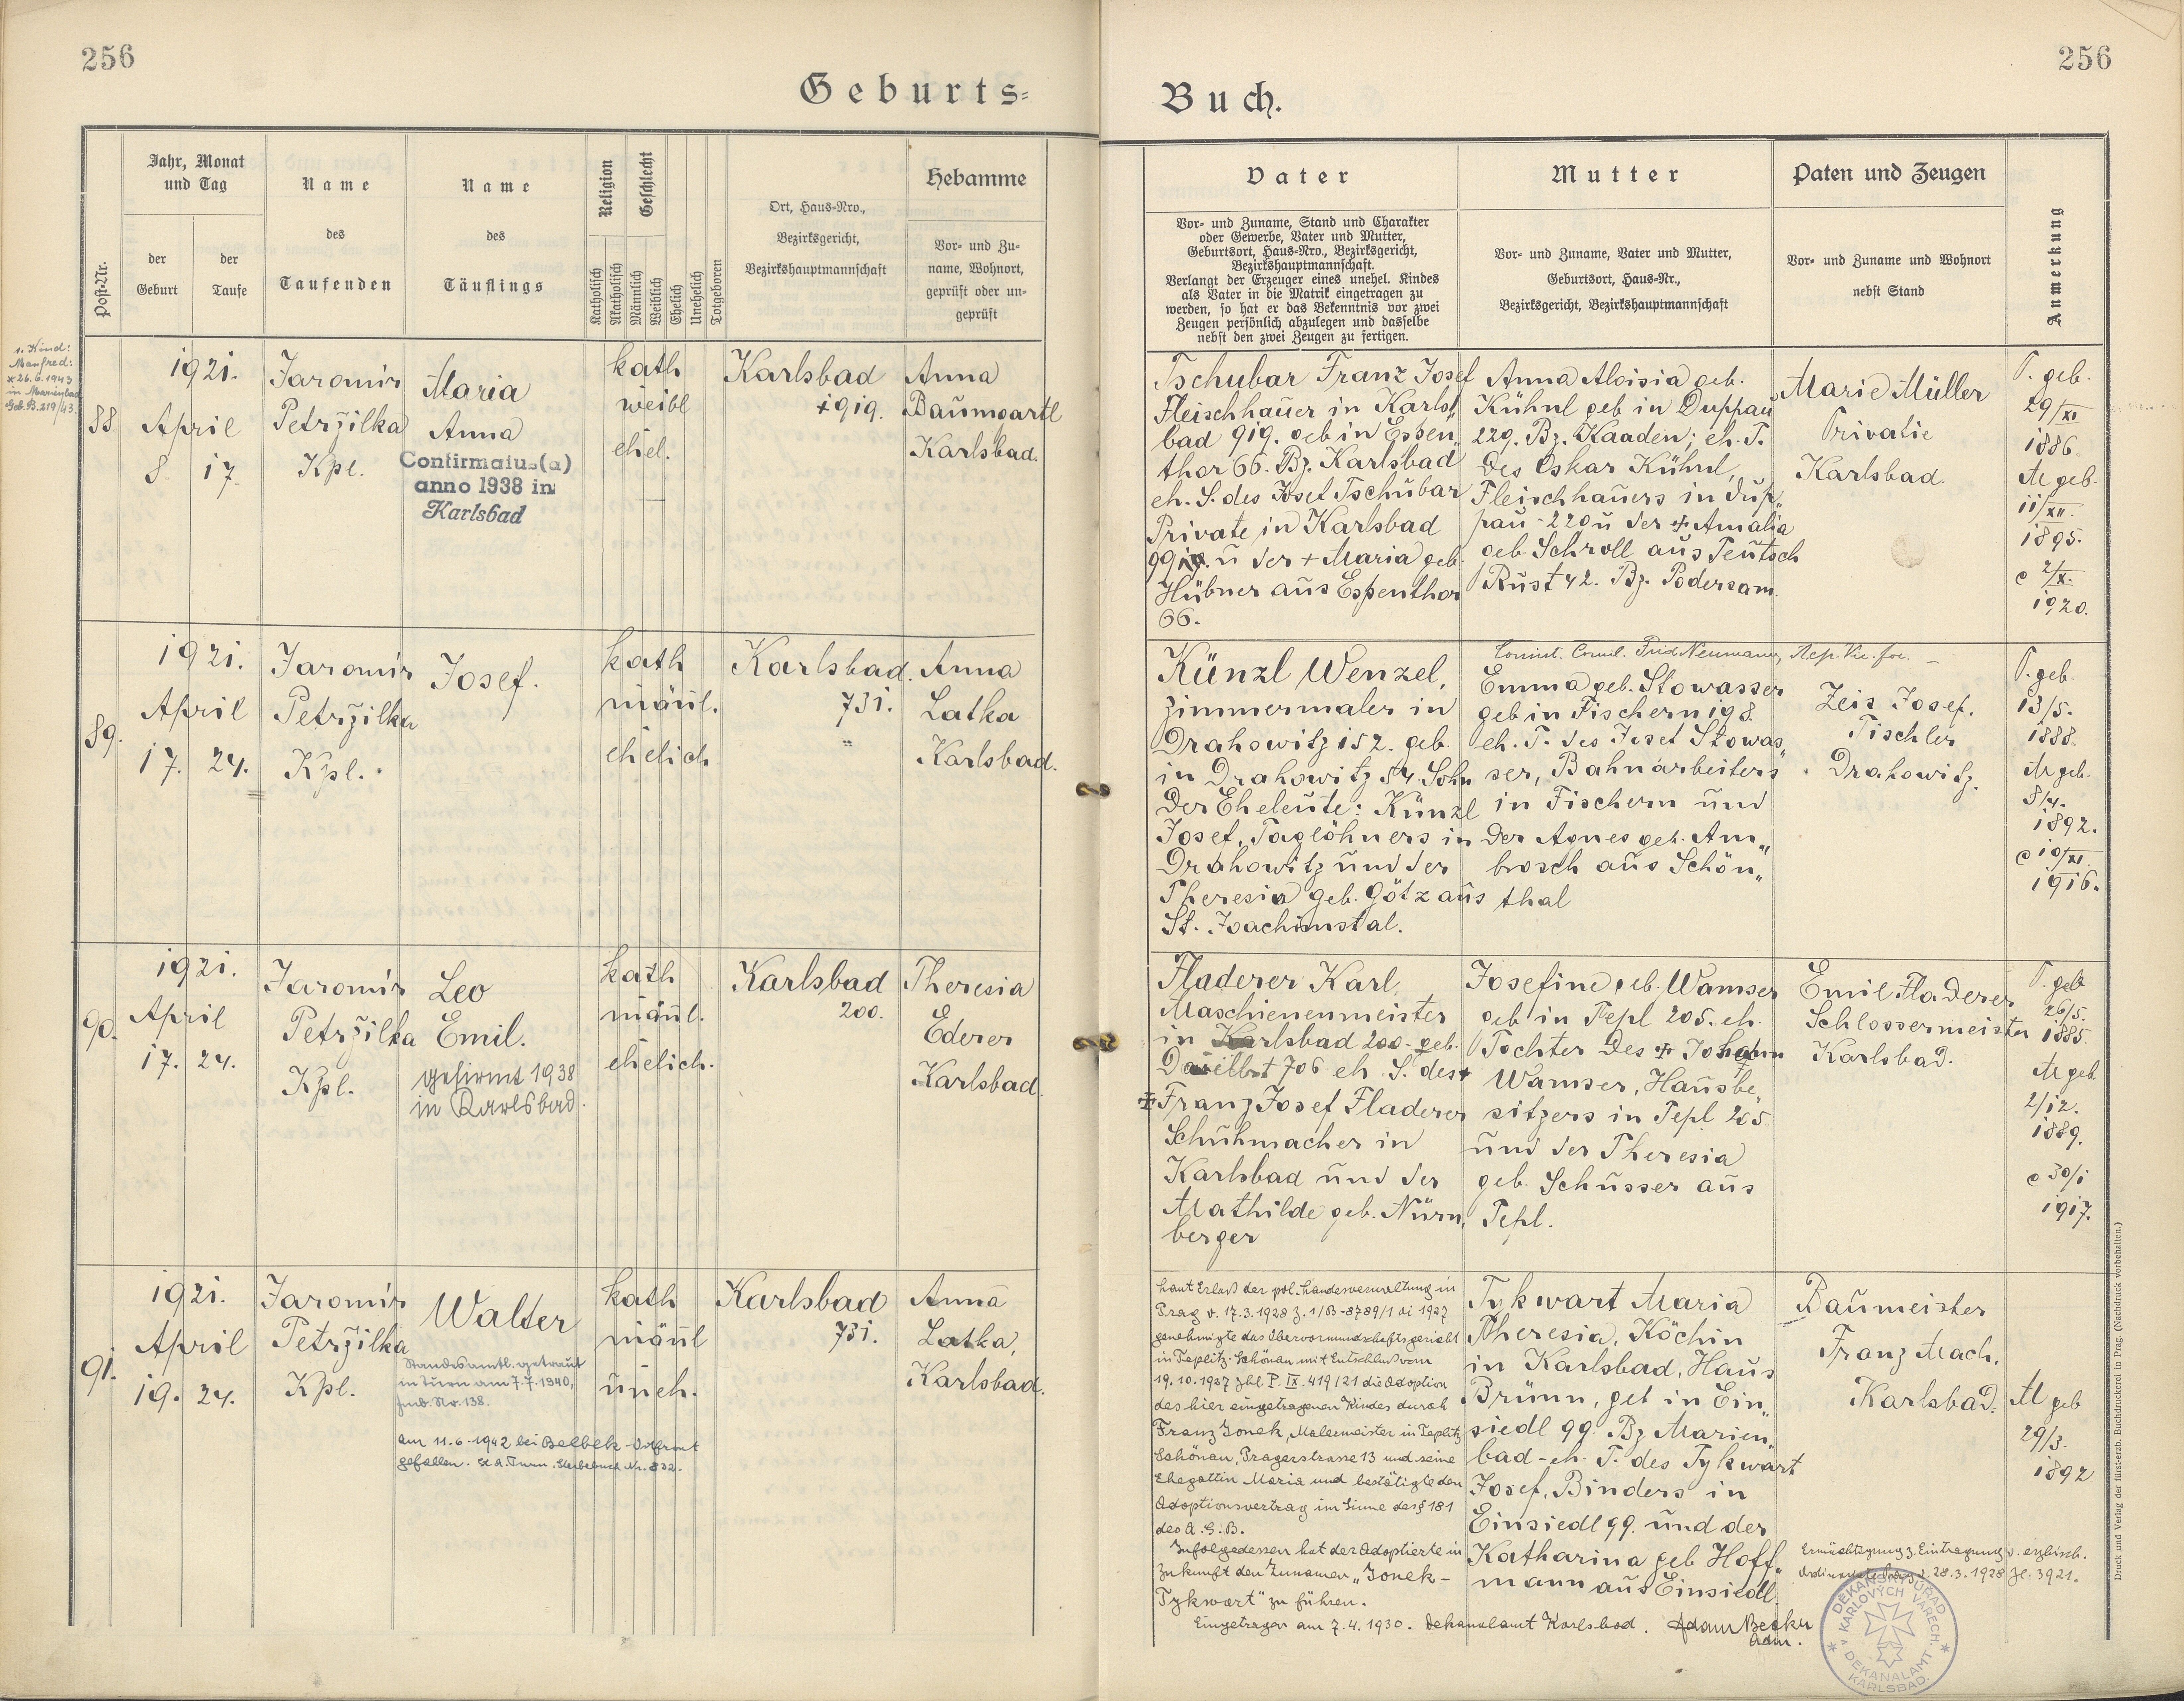 256
256
Geburts-
Buch.
Post-Nr.
Jahr, Monat
und Tag
der
Geburt
der
Taufe
Name
des
Taufenden
Name
des
Täuflings
Religion
Geschlecht
Katholisch
Akatholisch
Männlich
Weiblich
Ehelich
Unehelich
Totgeboren
Ort, Haus-Nro.,
Bezirksgericht,
Bezirkshauptmannschaft
Hebamme
Vor- und Zu-
name, Wohnort,
geprüft oder un-
geprüft
Vater
Vor- und Zuname, Stand und Charakter
oder Gewerbe, Vater und Mutter,
Geburtsort, Haus-Nro., Bezirksgericht,
Bezirkshauptmannschaft.
Verlangt der Erzeuger eines unehel. Kindes
als Vater in die Matrik eingetragen zu
werden, so hat er das Bekenntnis vor zwei
Zeugen persönlich abzulegen und dasselbe
nebst den zwei Zeugen zu fertigen.
Mutter
Vor- und Zuname, Vater und Mutter,
Geburtsort, Haus-Nr.,
Bezirksgericht, Bezirkshauptmannschaft
Paten und Zeugen
Vor- und Zuname und Wohnort
nebst Stand
Anmerkung
1. Kind:
Manfred:
* 26.6.1943
in Marienbad
Geb. B. 219/43.
88
1921.
April
8. 17.
Jaromír
Petržilka
Kpl.
Maria
Anna
Confirmatus(a)
anno 1938 in
Karlsbad
kath
weibl
ehel.
Karlsbad
919.
Anna
Baumgartl
Karlsbad.
Tschubar Franz Josef
Fleischhauer in Karls„
bad 919. geb in Espen„
thor 66. Bz. Karlsbad
eh. S. des Josef Tschubar
Private in Karlsbad
u der + Maria geb.
Hübner aus Espenthor
66.
Anna Aloisia geb.
Kühnl geb in Duppau
229. Bz. Kaaden; eh. T.
des Oskar Kühnl,
Fleischhauers in Dup„
pau - 220 u der + Amalia
geb. Schroll aus Teutsch
Rust 42. Bz. Podersam.
Marie Müller
Private
Karlsbad.
V. geb.
29/XI
1886.
M geb.
11/XII.
1895.
c 2/X.
1920.
89.
1921.
April
17. 24.
Jaromír
Petržilka
Kpl.
Josef.
kath
männl.
ehelich
Karlsbad.
731.
Anna
Latka
Karlsbad.
Künzl Wenzel,
Zimmermaler in
Drahowitz 152. geb.
in Drahowitz 54. Sohn
der Eheleute: Künzl
Josef, Taglöhners in
Drahowitz und der
Theresia geb. Götz aus
St. Joachimstal.
Emma geb. Stowasser
geb in Fischern 198.
eh. T. des Josef Stowas„
ser, Bahnarbeiters
in Fischern und
der Agnes geb. Am„
brosch aus Schön„
thal
Zeis Josef.
Tischler
Drahowitz.
V. geb.
13/5.
1888.
M geb.
8/4.
1892.
c 10/XI.
1916.
90.
1921.
April
17. 24.
Jaromír
Petržilka
Kpl.
Leo
Emil.
gefirmt 1938
in Karlsbad.
kath
männl.
ehelich.
Karlsbad
200.
Theresia
Ederer
Karlsbad.
Fladerer Karl,
Maschienenmeister
in Karlsbad 200 - geb.
Daselbst 706 eh. S. des
+ Franz Josef Fladerer
Schuhmacher in
Karlsbad und der
Mathilde geb. Nürn„
berger
Josefine geb. Wamser
geb in Tepl 205. eh.
Tochter des + Johann
Wamser, Hausbe„
sitzers in Tepl 205
und der Theresia
geb. Schusser aus
Tepl.
Emil Fladerer
Schlossermeister
Karlsbad.
V. geb
26/5.
1885.
M geb
2/12.
1889.
c 30/1
1917.
91.
1921.
April
19. 24.
Jaromír
Petržilka
Kpl.
Walter
Standesamtl. getraut
in Turn am 7.7.1940,
Fmb. Nr. 138.
Am 11.6.1942 bei Belbek - Ostfront
gefallen. St. A. Turn, Sterbebuch Nr. 832.
kath
männl
uneh.
Karlsbad
731.
Anna
Latka,
Karlsbad.
Laut Erlaß der pol. Landesverwaltung in
Prag v. 17.3.1928 Z. 1/B-8789/1 ai 1927
genehmigte das Obervormundschaftsgericht
in Teplitz-Schönau mit Entschluß vom
19.10.1927 Zhl. P. IX. 419/21 die Adoption
des hier eingetragenen Kindes durch
Franz Jonek, Malermeister in Teplitz
Schönau, Pragerstrasse 13 und seine
Ehegattin Maria und bestätigte den
Adoptionsvertrag im Sinne des § 181
des A.G.B.
Infolgedessen hat der Adoptierte in
Zukunft den Zunamen „Jonek-
Tykwart" zu führen.
Eingetragen am 7.4.1930. Dekanalamt Karlsbad. Adam Becku
Adm.
Tykwart Maria
Theresia, Köchin
in Karlsbad, Haus
Brünn, geb in Ein„
siedl 99. Bz Marien„
bad - eh. T. des Tykwart
Josef, Binders in
Einsiedl 99. und der
Katharina geb Hoff„
mann aus Einsiedl.
Baumeister
Franz Mach,
Karlsbad.
M geb
29/3.
1892
Ermächtigung z. Eintragung v. erzbisch.
Ordinariate v. 28.3.1928 Zl. 3921.
DĚKANSKÝ ÚŘAD
V KARLOVÝCH VARECH.
DEKANALAMT
KARLSBAD.
Druck und Verlag der fürst-erzb. Buchdruckerei in Prag. (Nachdruck vorbehalten.)